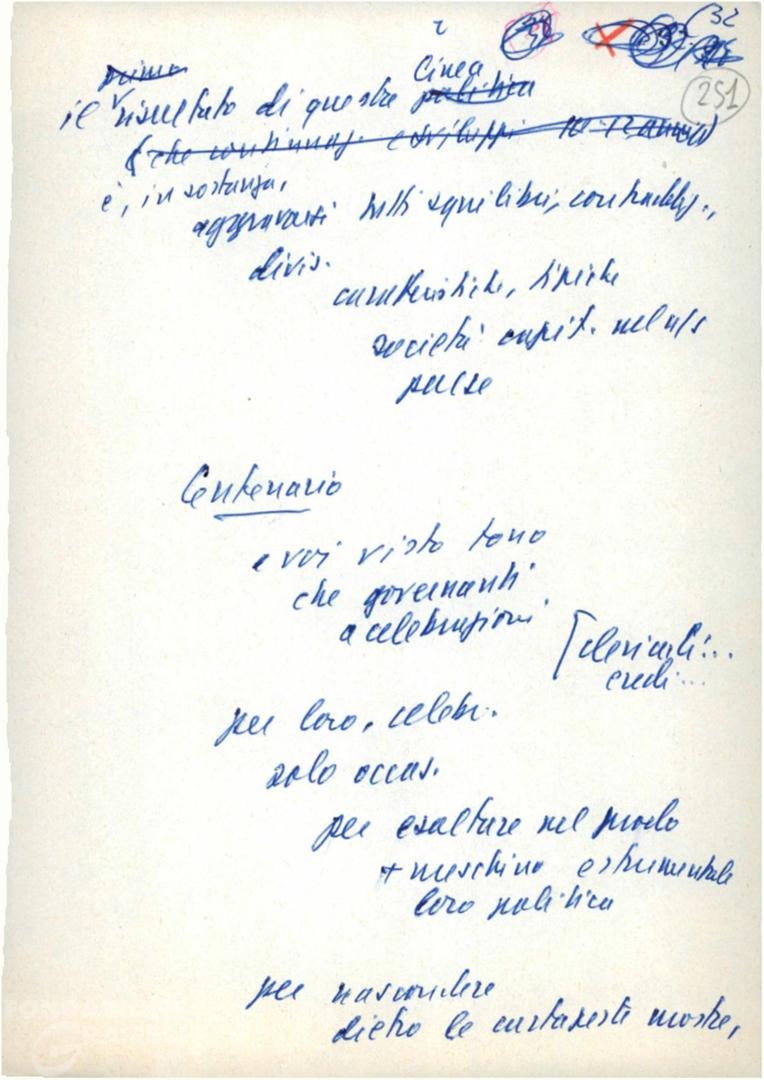 32
251
primo
linea
il risultato di queste politica
(che continuaz. e sviluppi
è, in sostanza,
aggravarsi tutti squilibri, contraddiz.,
divis.
caratteristiche, tipiche
società capit. nel ns/
paese
Centenario
e voi visto tono
che governanti
a celebrazioni
[clericali...
eredi...
per loro, celebr.
solo occas.
per esaltare nel modo
+ meschino e strumentale
loro politica
per nascondere
dietro le cartapeste mostre,